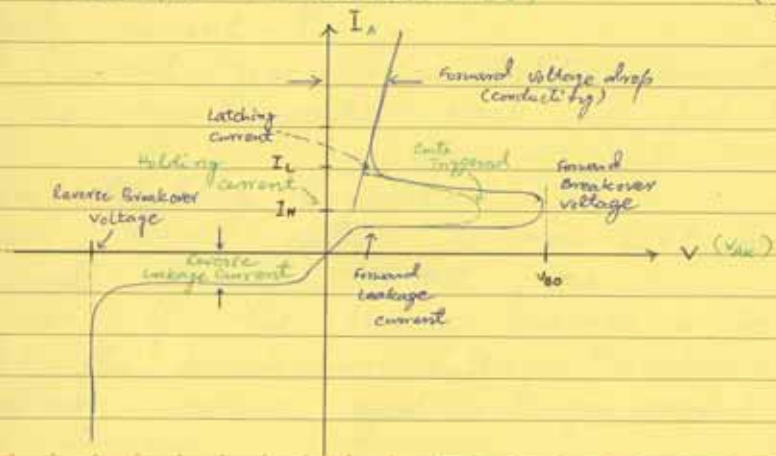 I_A
Forward voltage drop
(conducting)
Latching
current
Holding
current
I_L
Gate
Triggered
Forward
Breakover
voltage
Reverse Breakover
voltage
I_H
Reverse
Leakage Current
V (V_AK)
V_BO
Forward
Leakage
current